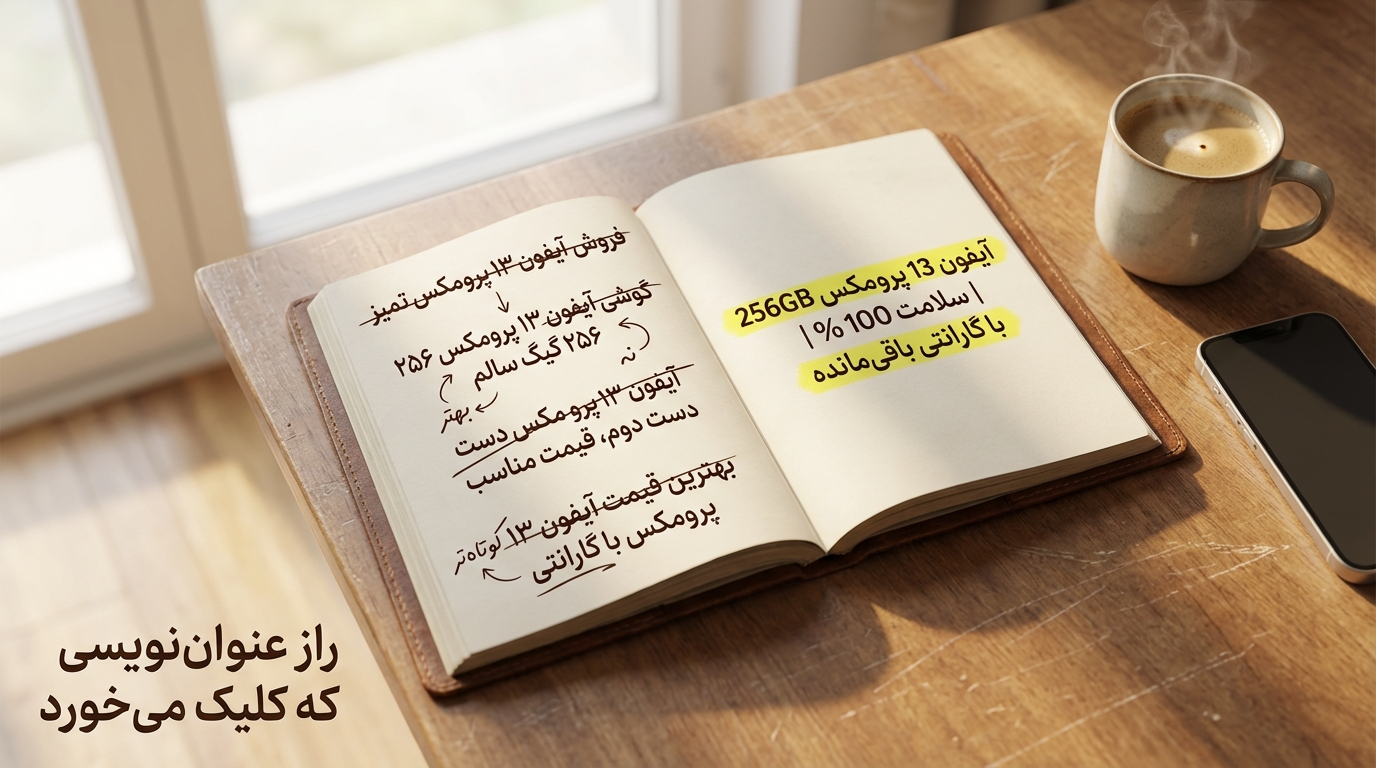 فروش آیفون ۱۳ پرومکس تمیز
گوشی آیفون ۱۳ پرومکس ۲۵۶
۲۵۶ گیگ سالم
نه
بهتر
آیفون ۱۳ پرومکس دست
دست دوم، قیمت مناسب
بهترین قیمت آیفون ۱۳
کوتاه‌تر
پرومکس با گارانتی
آیفون 13 پرومکس 256GB
| سلامت 100% |
با گارانتی باقی‌مانده
راز عنوان‌نویسی
که کلیک می‌خورد